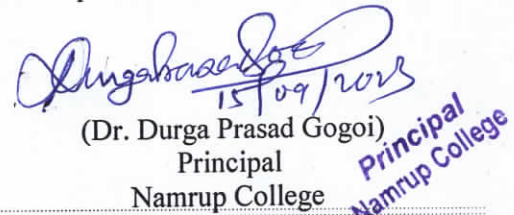 15/09/2023
(Dr. Durga Prasad Gogoi)
Principal
Namrup College
Principal
Namrup College